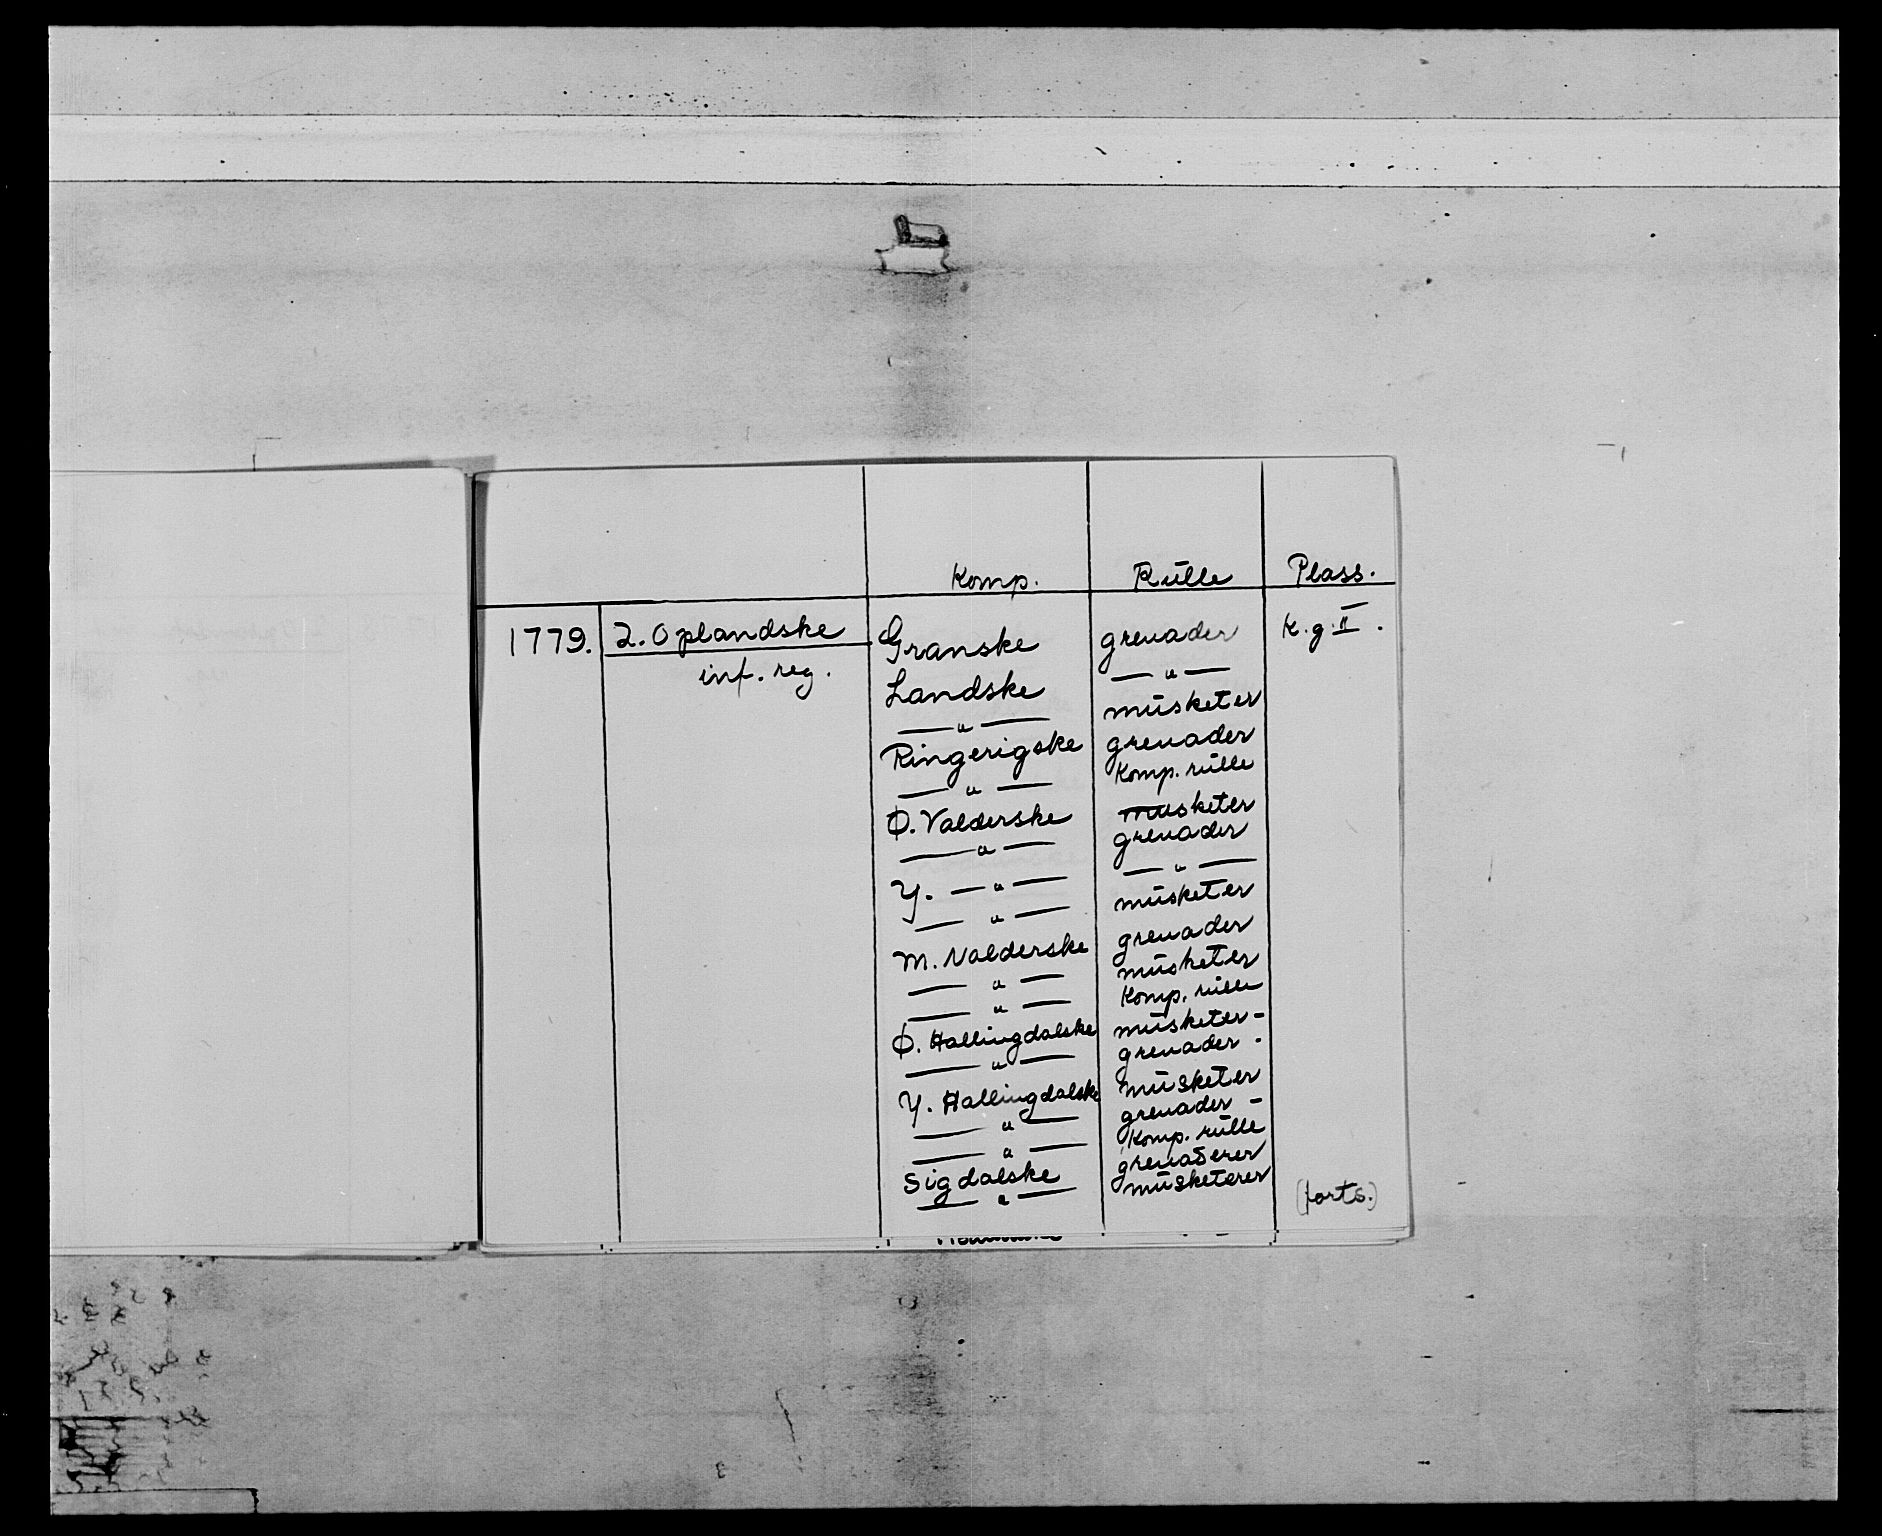 Komp. Rulle Plass.
1779. 2. Oplandske Granske grenader K.g. II.
inf. reg. Landske — " —
— " — musketer
Ringerigske grenader
— " — Komp. rulle
Ø. Valderske musketer
— " — grenader
Y. — " — — " —
— " — musketer
M. Valderske grenader
— " — musketer
— " — Komp. rulle
Ø. Hallingdalske musketer-
— " — grenader -
Y. Hallingdalske musketer
— " — grenader -
— " — Komp. rulle
Sigdalske grenaderer
— " — musketerer (forts.)